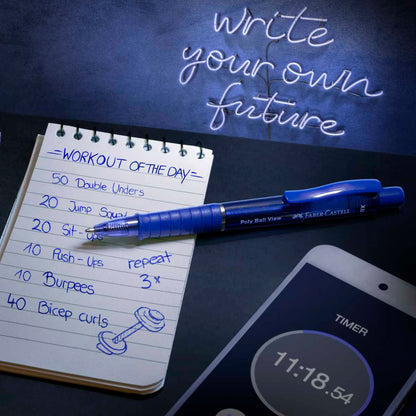 write
your own
future
=WORKOUT OF THE DAY=
50 Double Unders
20 Jump Squats
20 Sit-ups
10 Push-Ups
10 Burpees
40 Bicep curls
repeat
3x
Poly Ball View
FABER-CASTELL
TIMER
11:18.54